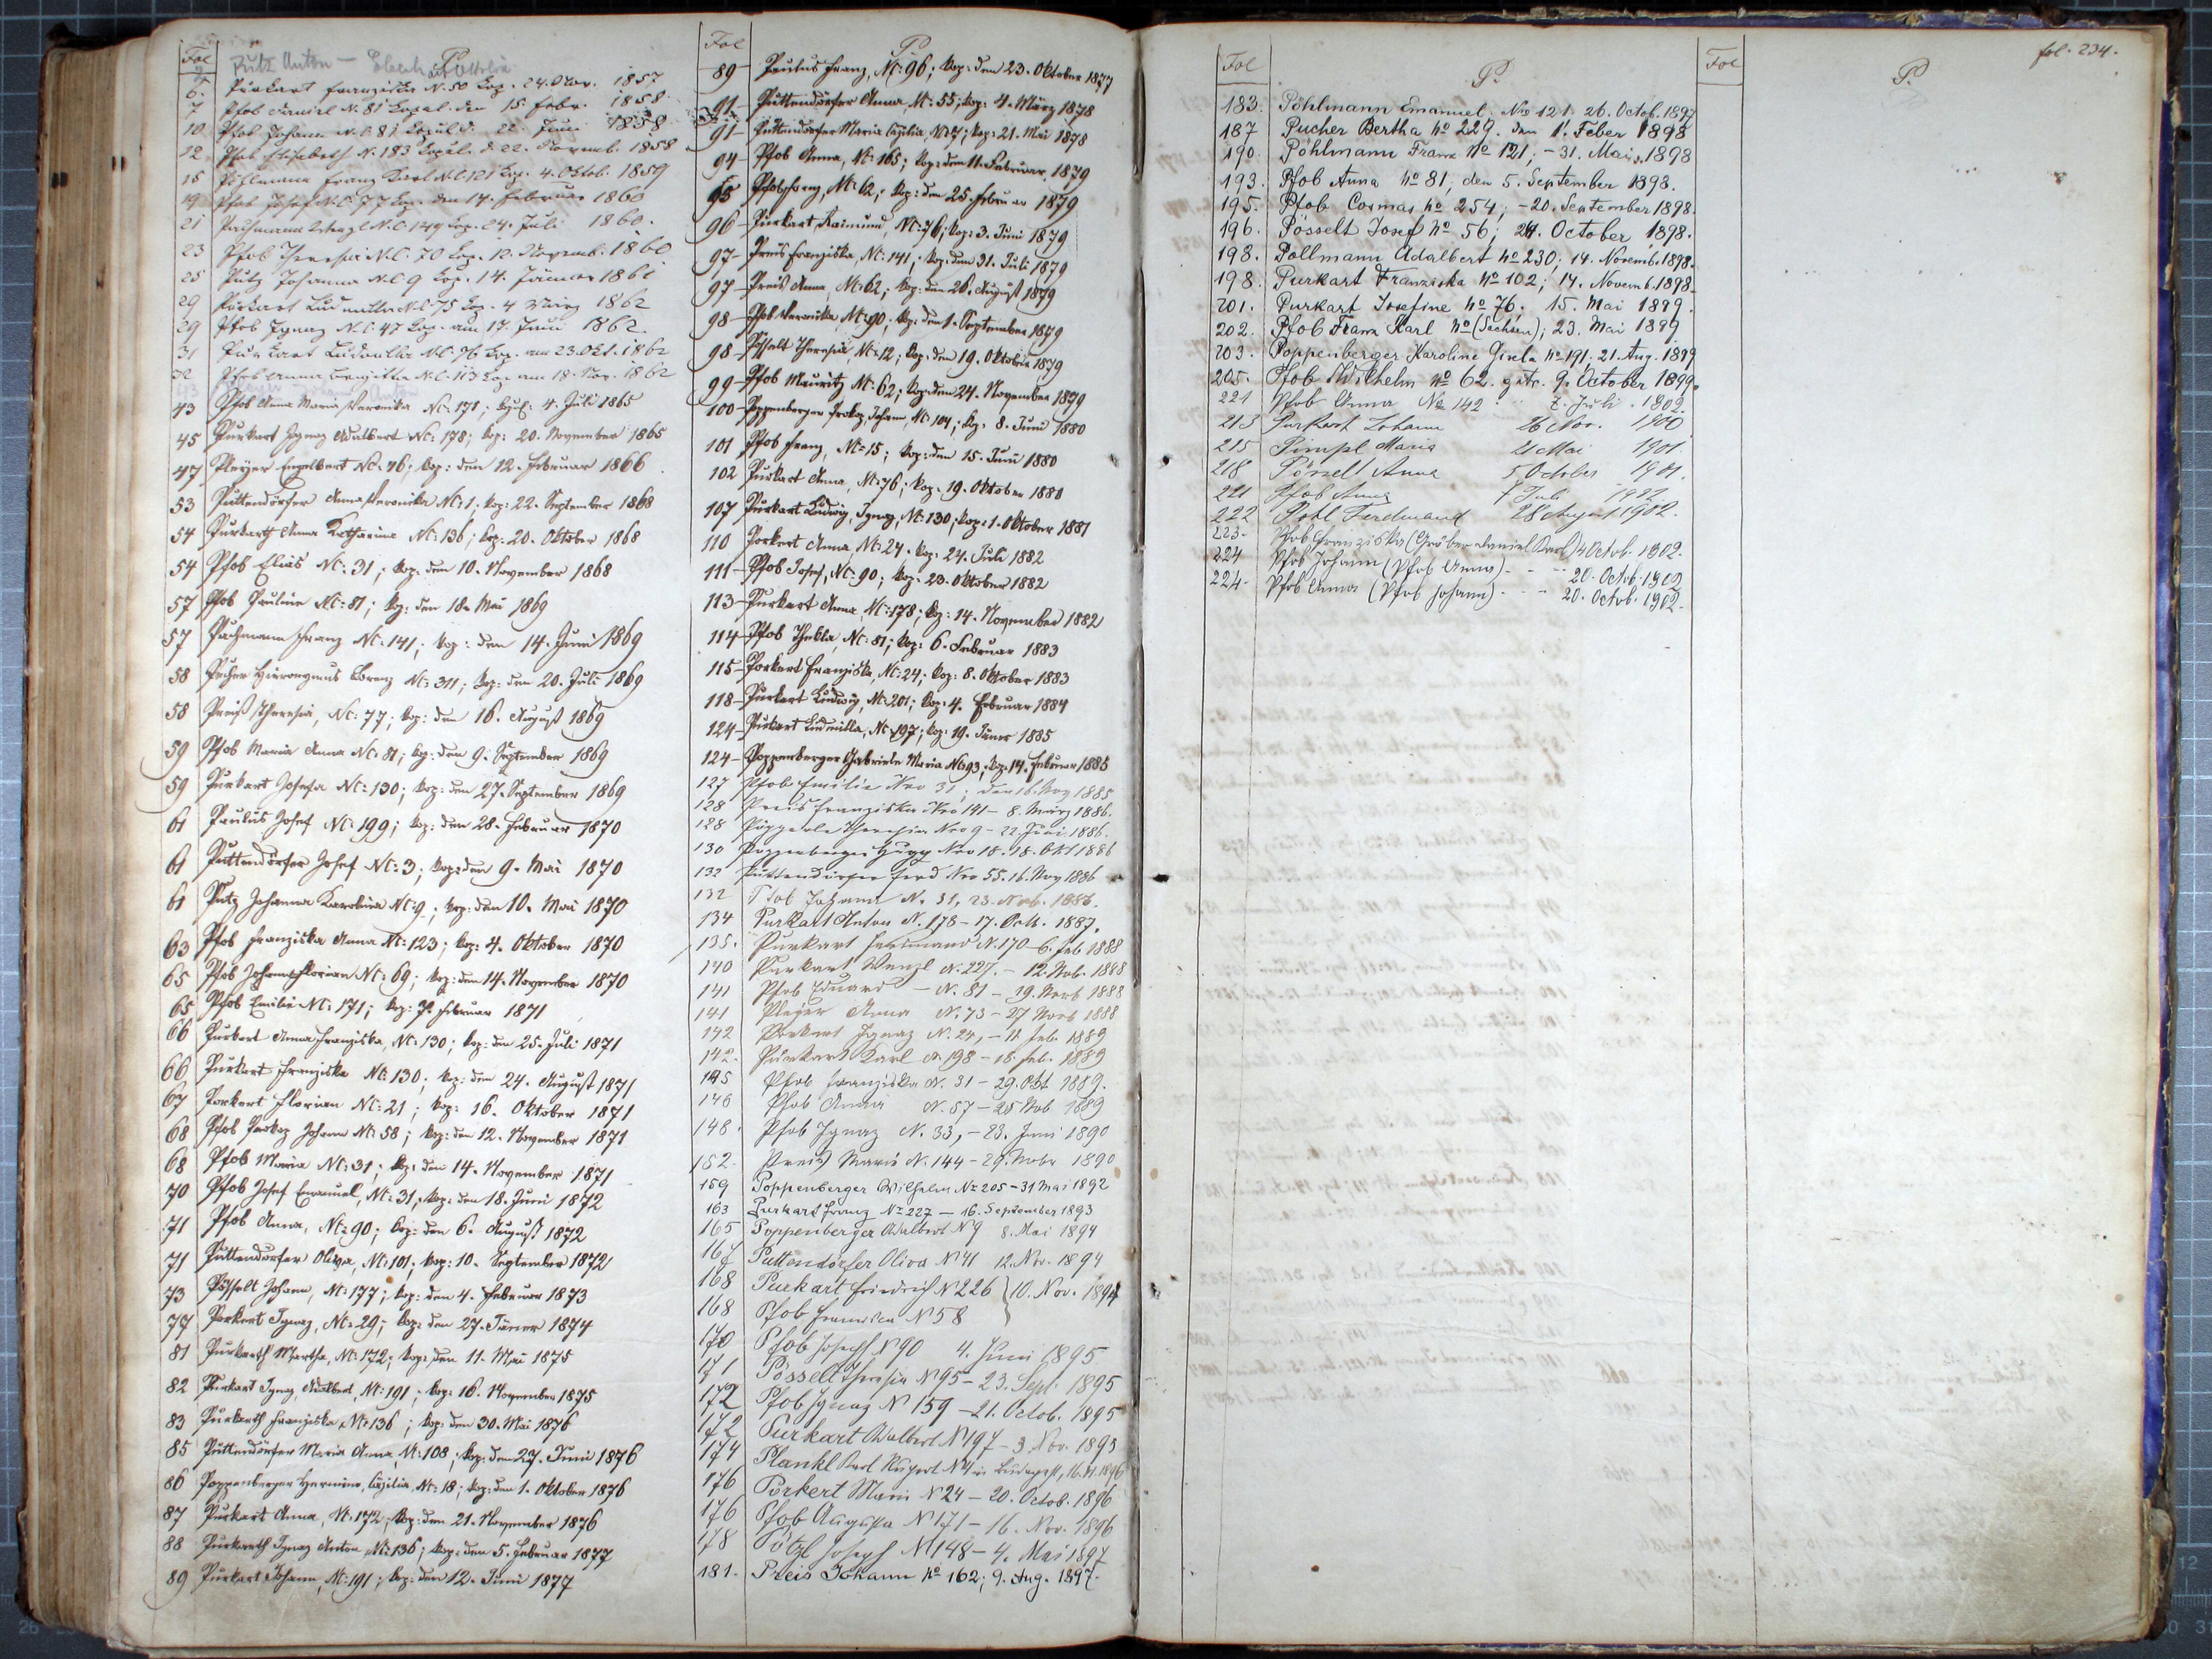 Fol
P.
Putz Anton —
6. Purkart Franziska N. 50 Kop. 24. Nov. 1857
7 Pfob Daniel N. 81 Kopul. den 15 Febr. 1858
10 Pfob Johann N.C. 81 Kopul. d. 22. Juni 1858
12 Pfob Elisabeth N. 183 Kopul. d. 22. Novemb. 1858
15 Pöhlmann Franz Karl N.C. 121 Kop. 4. Octob. 1859
19 Pfob Josef N.C. 77 Kop. den 14. Februar 1860
21 Wenzl N.C. 149 Kop. 24. Juli 1860.
23 Pfob Theresia N.C. 70 Kop. 12. Novemb. 1860
25 Putz Johanna N.C. 9 Kop. 14. Jänner 1861
29 Purkart Ludmilla N.C. 75 Kop. 4 März 1862
29 Pfob Ignaz N.C. 47 Kop. am 17. Juni 1862.
31 Purkart Ludmilla N.C. 76 Kop. am 23. Okt. 1862
32 Pfob Anna Brigitta N.C. 113 Kop. am 18. Nov. 1862
43 Pfob Anna Maria Veronika NC: 171; Kopul. 4. Juli 1865
45 Purkart Ignaz Adalbert NC: 178; kop: 20. November 1865
47 Pleyer Engelbert NC: 76; kop: den 12. Februar 1866
53 Puttendörfer Anna Veronika NC: 1; kop: 22. September 1868
54 Purkarth Anna Katharina NC: 136; kop: 20. Oktober 1868
54 Pfob Elias NC: 31; kop: den 10. November 1868
57 Pfob Pauline NC: 81; kop: den 18. Mai 1869
57 Pachmann Franz NC: 141; kop: den 14. Juni 1869
58 Pucher Hieronymus Lorenz NC: 311; kop: den 20. Juli 1869
58 Preiß Theresia, NC: 77; kop: den 16. August 1869
59 Pfob Maria Anna NC: 81; kop: den 9. September 1869
59 Purkart Josefa NC: 130; kop: den 27. September 1869
61 Paulus Josef NC: 199; kop: den 28. Februar 1870
61 Puttendörfer Josef NC: 3; kop: den 9. Mai 1870
61 Putz Johanna Karolina NC: 9; kop: den 10. Mai 1870
63 Pfob Franziska Anna NC: 123; kop: 4. Oktober 1870
65 Pfob Johann Florian NC: 69; kop: den 14. November 1870
65 Pfob Emilie NC: 171; kop: Februar 1871
66 Purkart Anna Franziska, NC: 130; kop: den 25. Juli 1871
66 Purkart Franziska NC: 130; kop: den 24. August 1871
67 Porkert Florian NC: 21; kop: 16. Oktober 1871
68 Pfob Prokop Johann NC: 58; kop: den 12. November 1871
68 Pfob Maria NC: 31; kop: den 14. November 1871
70 Pfob Josef Emanuel, NC: 31, kop: den 18. Juni 1872
71 Pfob Anna, NC: 90; kop: den 6. August 1872
71 Puttendörfer Oliva, NC: 101; kop: 10. September 1872
73 Pösselt Johann, NC: 177; kop: den 4. Februar 1873
77 Porkert Ignaz, NC: 29; kop: den 27. Jäner 1874
81 Purkarth Martha, NC: 172; kop: den 11. Mai 1875
82 Purkart Ignaz Adalbert, NC: 191; kop: 16. November 1875
83 Purkarth Franziska NC: 136; kop: den 30. Mai 1876
85 Puttendörfer Maria Anna, NC: 108; kop: den 27. Juni 1876
86 Poppenberger Hermine Cäzilia, NC: 18; kop: den 1. Oktober 1876
87 Purkart Anna, NC: 172; kop: den 21. November 1876
88 Purkarth Ignaz Anton, NC: 136; kop: den 5. Februar 1877
89 Purkart Johann, NC: 191; kop: den 12. Juni 1877
Fol
P.
89 Paulus Franz, NC: 96; kop: den 23. Oktober 1877
91 Puttendörfer Anna NC: 55; kop: 4. März 1878
91 Puttendörfer Maria Cäzilia, kop: 21. Mai 1878
94 Pfob Anna, NC: 165; kop: den 11. Februar 1879
95 Pfob Franz, NC: 62; kop: den 25. Februar 1879
96 Purkart Raimund, NC: 76; kop: 3. Juni 1879
97 Preis Franziska, NC: 141; kop: den 31. Juli 1879
97 Preis Anna, NC: 62; kop: den 26. August 1879
98 Pfob Veronika, NC: 90; kop: den 1. September 1879
98 Pösselt Theresia, NC: 12; kop: den 19. Oktober 1879
99 Pfob Mauritz NC: 62; kop: den 24. November 1879
100 Poppenberger Prokop Johann, NC: 104; kop: 8. Juni 1880
101 Pfob Franz, NC: 15; kop: den 15. Juni 1880
102 Purkart Anna, NC: 76; kop: 19. Oktober 1880
107 Purkart Ludwig, Ignaz, NC: 130; kop: 1. Oktober 1881
110 Porkert Anna, NC: 24. kop: 24. Juli 1882
111 Pfob Josef, NC: 90; kop: 23. Oktober 1882
113 Purkart Anna, NC: 178; kop: 14. November 1882
114 Pfob Thekla, NC: 81; kop: 6. Februar 1883
115 Porkert Franziska, NC: 24; kop: 8. Oktober 1883
118 Purkart Ludwig, NC: 201; kop: 4. Februar 1884
124 Purkart Ludmilla, NC: 197; kop: 19. Jäner 1885
124 Poppenberger Gabriele Maria NC: 93; kop: 14. Februar 1885
127 Pfob Emilie Nro 31; den 16. Nov 1885
128 Preis Franziska Nro 141 – 8. März 1886.
128 Pöpperle Theresia Nro 9 – 22. Juni 1886.
130 Poppenberger Hugo Nro 18. 18. Okt 1886
132 Puttendörfer Ferd Nro 55. 16. Nov 1886
132 Pfob Johann N. 31, 23. Nob. 1886.
134 Purkart Anton N. 178 – 17. Octb. 1887.
135. Purkart Ferdinand N. 170 – 6. Feb 1888
140 Purkart Wenzl N. 227. – 12. Nob. 1888
141 Pfob Eduard – N. 81 – 19. Novb 1888
141 Pleyer Anna N. 73 – 27 Novb 1888
142 Porkert Ignaz N. 24, – 11 Feb. 1889
142. Purkart Karl N 198 – 18. Feb. 1889
145 Pfob Franziska N. 31 – 29. Okt 1889.
146 Pfob Anna N. 57 – 25 Nob 1889
148. Pfob Ignaz N. 33, – 23. Juni 1890
152. Preis Maria N. 144 – 29. Nobr 1890
159 Poppenberger Wilhelm No 205 – 31 Mai 1892
163 Purkart Franz No 227 – 16. September 1893
165 Poppenberger Adalbert N 9 8. Mai 1894
167 Puttendörfer Oliva N 41 12. Nov. 1894
168 Purkart Friedrich N 226 } 10. Nov. 1894
168 Pfob N 58
170 Pfob Joseph N 90 4. Juni 1895
171 Pösselt Theresia N 95 – 23. Sept. 1895
172 Pfob Ignaz N 159 – 21. Octob. 1895
172 Purkart Adalbert N 197 – 3. Nov. 1895
174 Plankl Karl Rupert N 4 in Budapest, 16. 1896
176 Porkert Marie N 24 – 20. Octob. 1896
176 Pfob Augusta N 171 – 16. Nov. 1896
178 Pötzl Joseph N 148 – 4. Mai 1897
181. Preis Johann No 162; 9. Aug. 1897.
Fol
P.
183. Pöhlmann Emanuel. Nro 121. 26. Octob. 1897
187 Pucher Bertha No 229. den 1. Feber 1898
190. Pöhlmann Franz No 121; – 31. Mai 1898
193. Pfob Anna No 81; den 5. September 1898.
195. Pfob Cosmas No 254; – 20. September 1898.
196. Pösselt Josef No 56; 24. October 1898.
198. Pollmann Adalbert No 230. 14. Novemb. 1898.
198. Purkart Franziska No 102; 14. Novemb. 1898.
201. Purkart Josefine No 76. 15. Mai 1899.
202. Pfob Franz Karl No (Sachsen); 23. Mai 1899
203. Poppenberger Karoline Gisela No 191. 21. Aug. 1899
205. Pfob Wilhelm No 62. 9. October 1899.
221 Pfob Anna No 142 7. Juli 1902.
213 Purkart Johann 26 Nov. 1900
215 Pimpl Maria 21 Mai 1901.
218 Pösselt Anna 5 October 1901.
221 Pfob Anna 7 Juli 1902.
222 Pohl Ferdinand 28 August 1902.
223. Pfob Franziska (Gröber Daniel Karl) 14 Octob. 1902.
224 Pfob Johann (Pfob Anna) - - - 20. Octob. 1902
224. Pfob Anna (Pfob Johann) - - - 20. Octob. 1902.
Fol
P.
fol. 234.